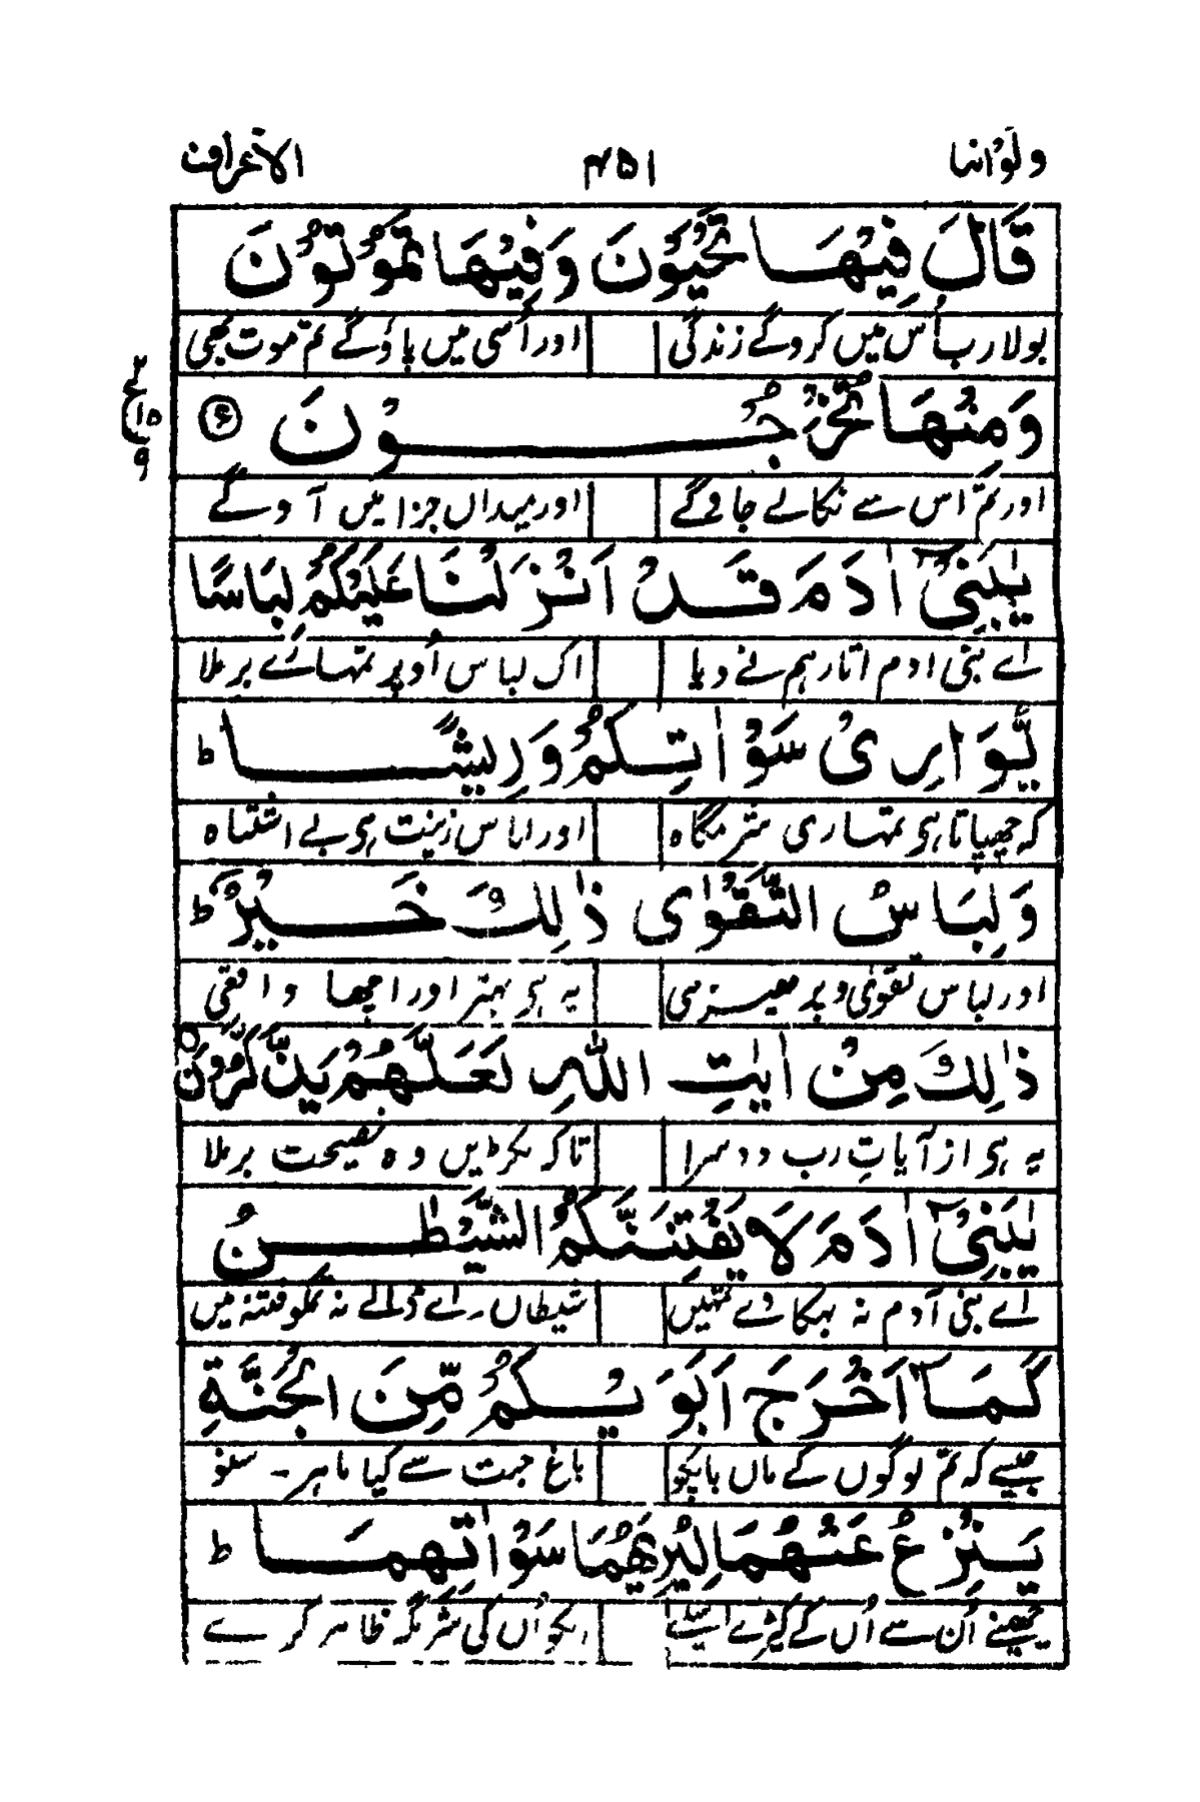 ولواننا ۴۵۱ الاعراف
قَالَ فِيْهَا تَحْيَوْنَ وَفِيْهَا تَمُوْتُوْنَ
بولا رب اُس میں کروگے زندگی اور اُسی میں پاؤگے تم موت بھی
وَمِنْهَا تُخْرَجُوْنَ
۲ ع ۱۵ ۹
اور تم اس سے نکالے جاؤگے اور میداں جزا میں آ وگے
يٰبَنِيْٓ اٰدَمَ قَدْ اَنْزَلْنَا عَلَيْكُمْ لِبَاسًا
اے بنی ادم اتار ہم نے دیا اک لباس اُوپر تمہارے برملا
يُّوَارِيْ سَوْاٰتِكُمْ وَرِيْشًا ط
کہ چھپاتا ہی تمہاری شرمگاہ اور لباس زینت ہی بے اشتباہ
وَلِبَاسُ التَّقْوٰى ذٰلِكَ خَيْرٌ ط
اور لباس تقویٰ و پرہیز ہی یہ ہی بہتر اور اچھا واقعی
ذٰلِكَ مِنْ اٰيٰتِ اللّٰهِ لَعَلَّهُمْ يَذَّكَّرُوْنَ ○
یہ ہی از آیاتِ رب دوسرا تاکہ پکڑیں وہ نصیحت برملا
يٰبَنِيْٓ اٰدَمَ لَا يَفْتِنَنَّكُمُ الشَّيْطٰنُ
اے بنی آدم نہ بہکاوے تمہیں شیطاں۔ اے ڈالے نہ تمکو فتنہ میں
كَمَآ اَخْرَجَ اَبَوَيْكُمْ مِّنَ الْجَنَّةِ
جیسے کہ تم لوگوں کے ماں باپکو باغ جنت سے کیا باہر۔ سنو
يَنْزِعُ عَنْهُمَا لِبَاسَهُمَا لِيُرِيَهُمَا سَوْاٰتِهِمَا ط
کھینچے اُن سے اُن کے کپڑے اسلئے انکو اُن کی شرمگہ ظاہر کرے